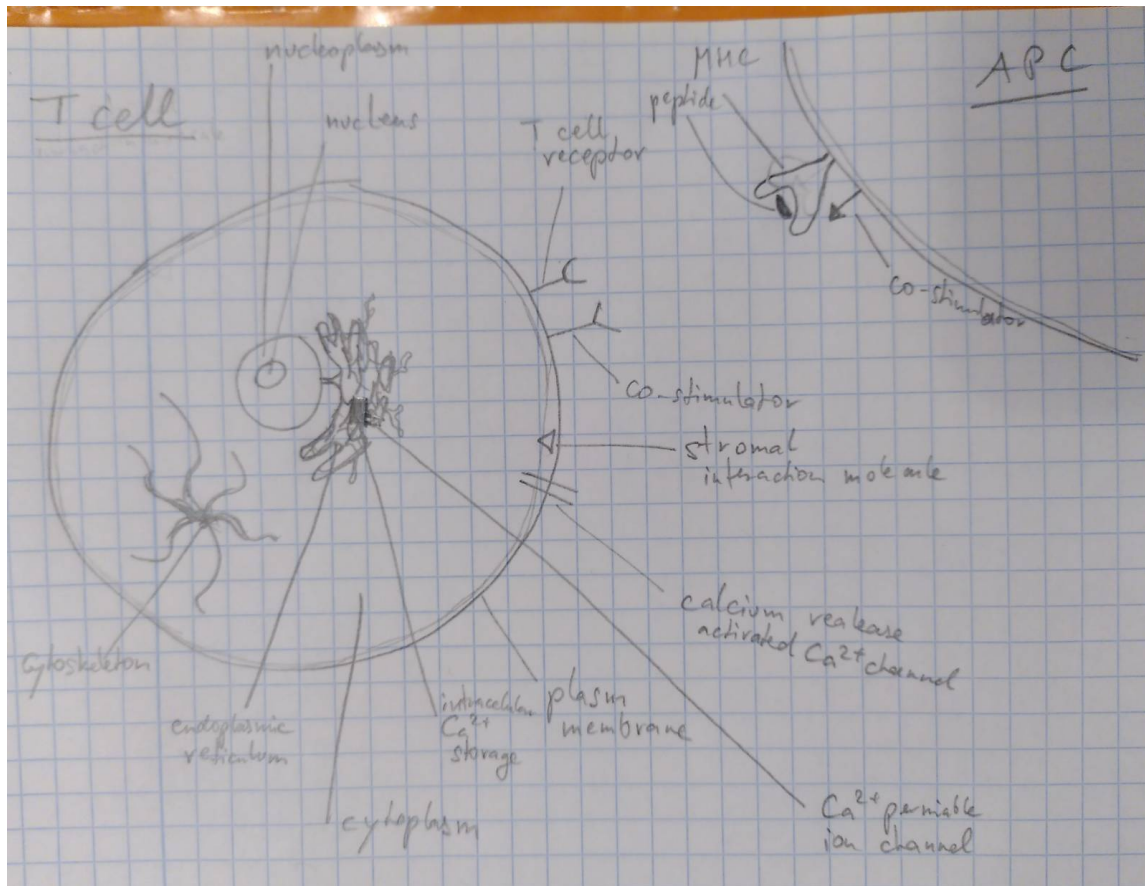 nucleoplasm
T cell
nucleus
T cell
receptor
MHC
peptide
APC
co-stimulator
co-stimulator
stromal
interaction molecule
calcium realease
activated Ca²⁺ channel
cytoskeleton
endoplasmic
reticulum
intracelular
Ca²⁺
storage
plasm
membrane
cytoplasm
Ca²⁺ permiable
ion channel